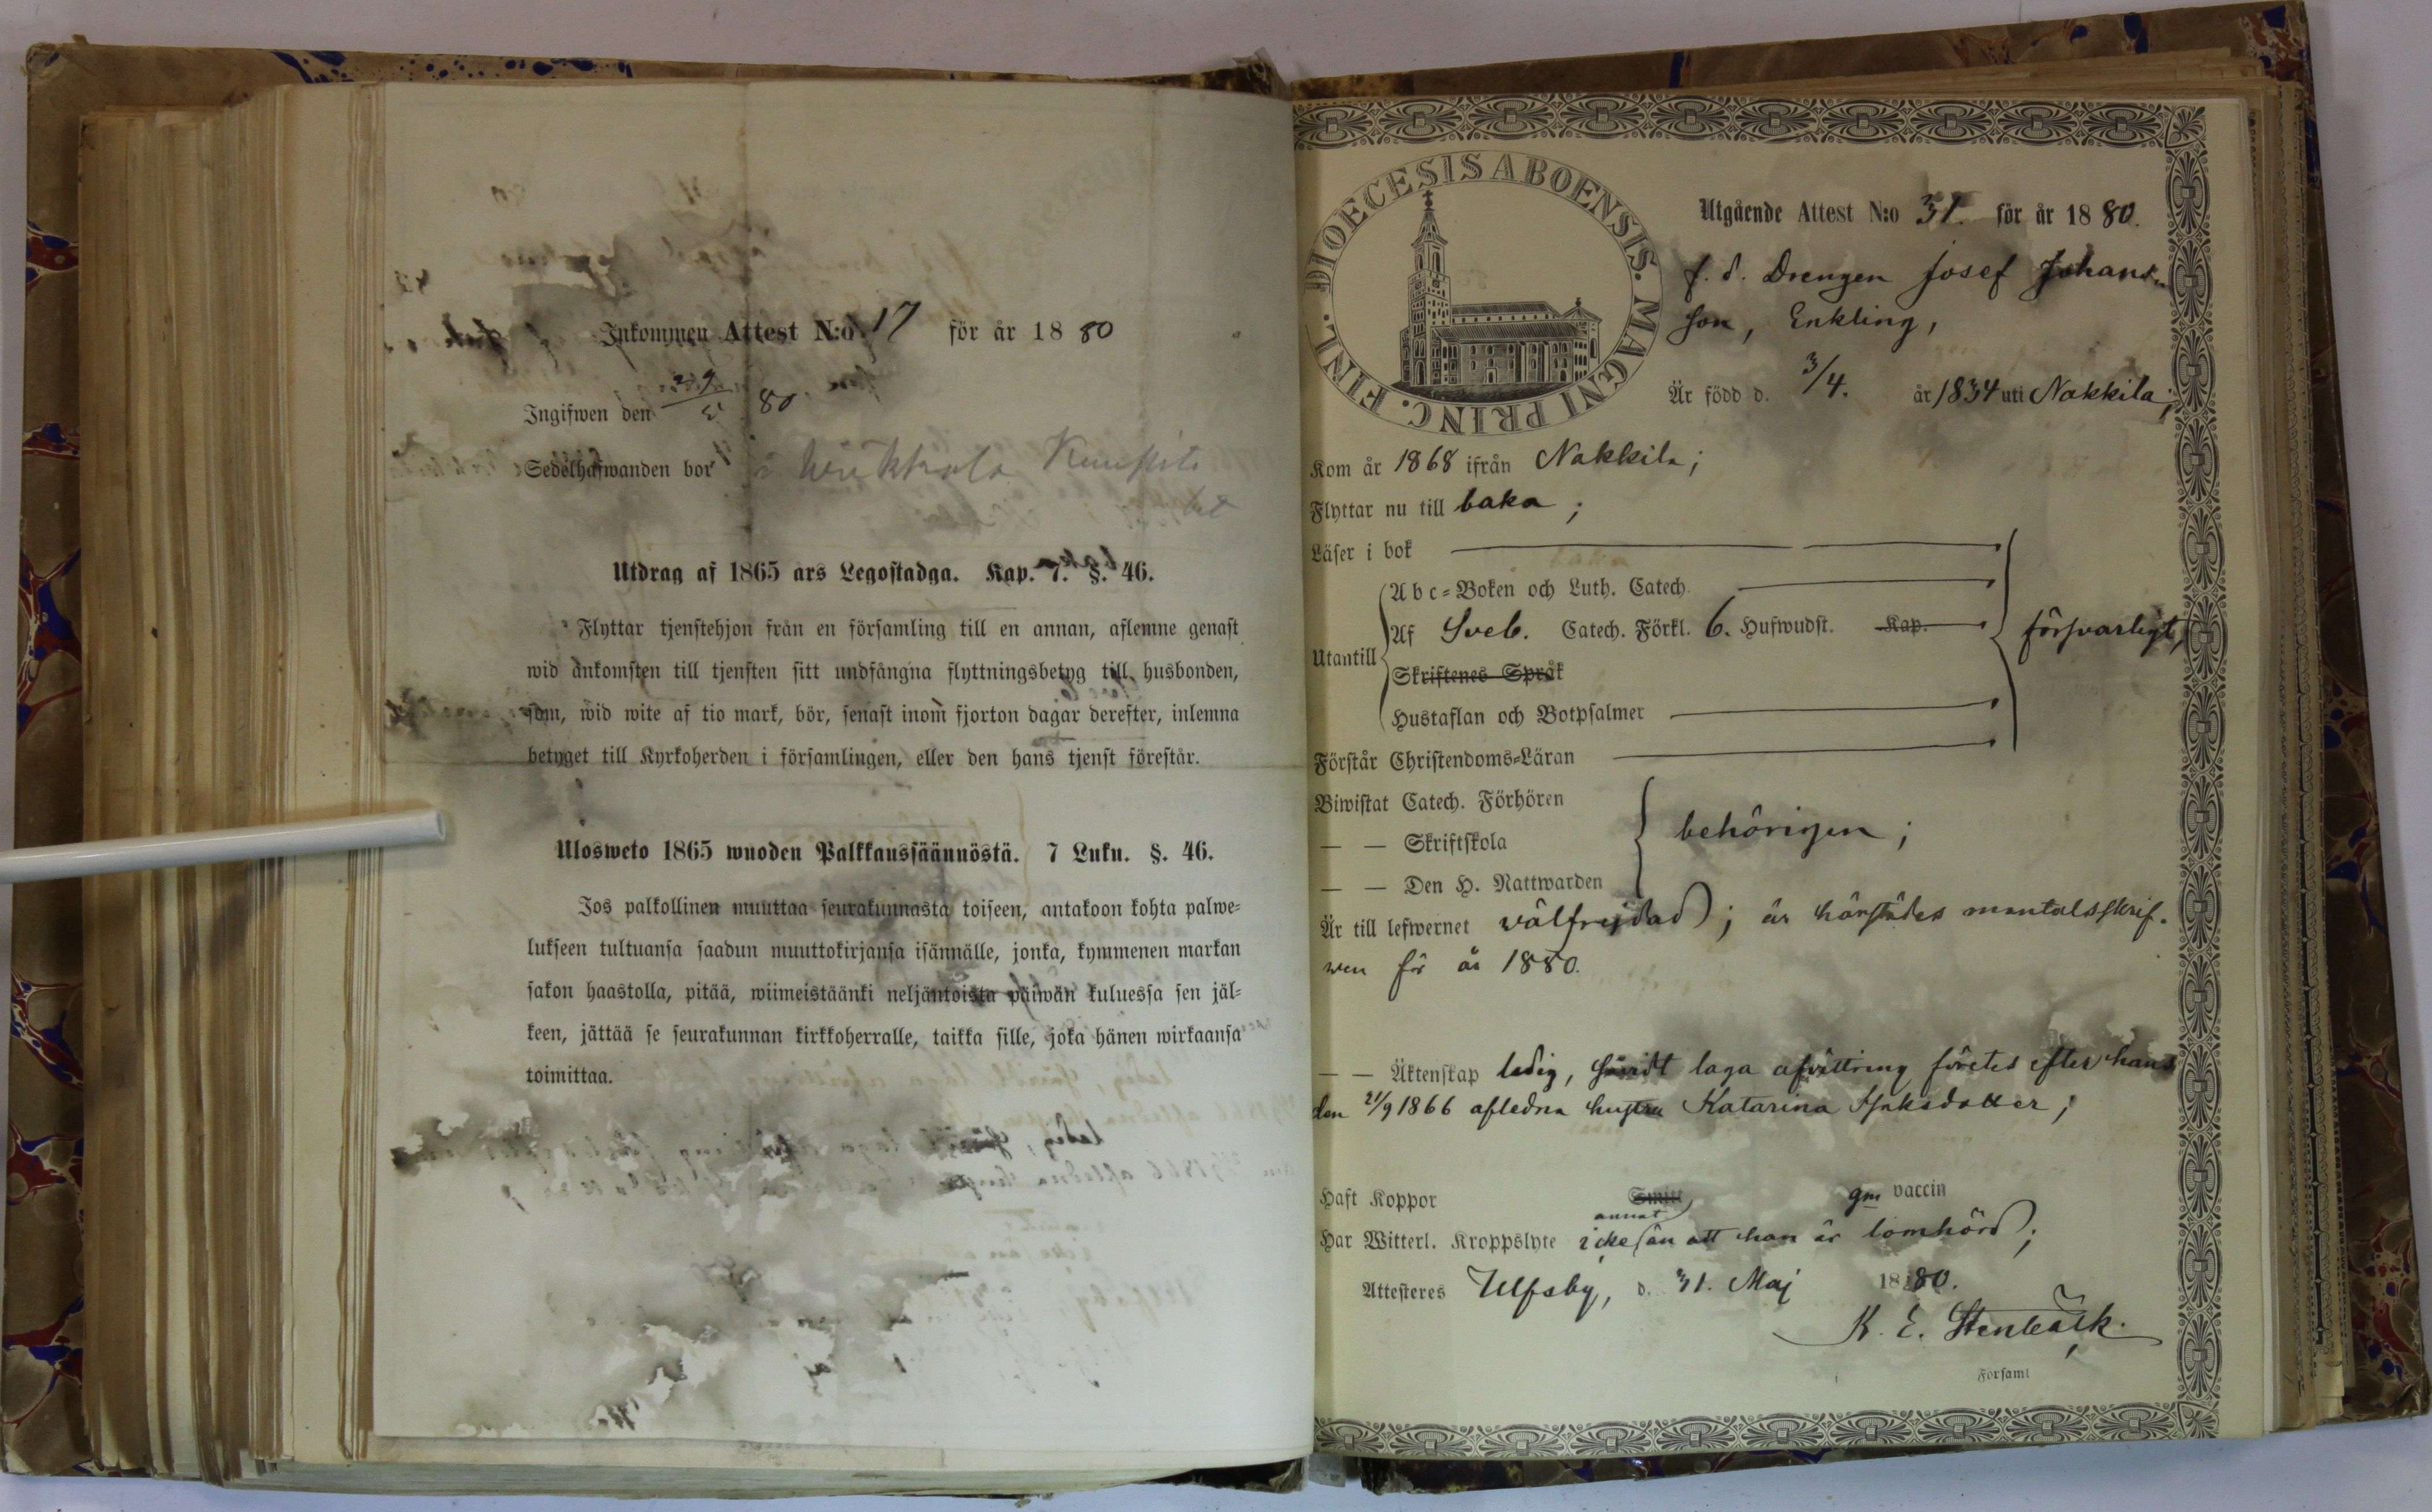 Inkommen Attest N:o 17 för år 1880
Ingifwen den 29/5 80
Sedelhafwanden bor i
Utdrag af 1865 års Legostadga. Kap. 7. §. 46.
Flyttar tjenstehjon från en församling till en annan, aflemne genast
wid ankomsten till tjensten sitt undfångna flyttningsbetyg till husbonden,
som, wid wite af tio mark, bör, senast inom fjorton dagar derefter, inlemna
betyget till Kyrkoherden i församlingen, eller den hans tjenst förestår.
Ulosweto 1865 wuoden Palkkaussäännöstä. 7 Luku. §. 46.
Jos palkollinen muuttaa seurakunnasta toiseen, antakoon kohta palwe-
lukseen tultuansa saadun muuttokirjansa isännälle, jonka, kymmenen markan
sakon haastolla, pitää, wiimeistäänki neljäntoista päiwän kuluessa sen jäl-
keen, jättää se seurakunnan kirkkoherralle, taikka sille, joka hänen wirkaansa
toimittaa.
DIOECESIS ABOENSIS. MAGNI PRINC. FINL.
Utgående Attest N:o 31. för år 1880.
f. d. Drengen Josef Johans-
son, Enkling,
Är född d. 3/4. år 1834 uti Nakkila;
Kom år 1868 ifrån Nakkila;
Flyttar nu till baka;
Läser i bok
Abc-Boken och Luth. Catech.
Utantill Af Sveb. Catech. Förkl. 6. Hufwudst. Kap. försvarligt,
Skriftenes Språk
Hustaflan och Botpsalmer
Förstår Christendoms-Läran
Biwistat Catech. Förhören
— — Skriftskola behörigen;
— — Den H. Nattwarden
Är till lefwernet välfrejdad; är härstädes mantalsskrif-
wen för år 1880.
— — Äktenskap ledig, laga afvittring företes efter hans
den 21/9 1866 afledna hustru Katarina Isaksdotter;
Haft Koppor Smitt gm vaccin
annat
Har Witterl. Kroppslyte icke än att han är lomhörd;
Attesteres Ulfsby, d. 31. Maj 1880.
K. E. Stenbäck.
Församl